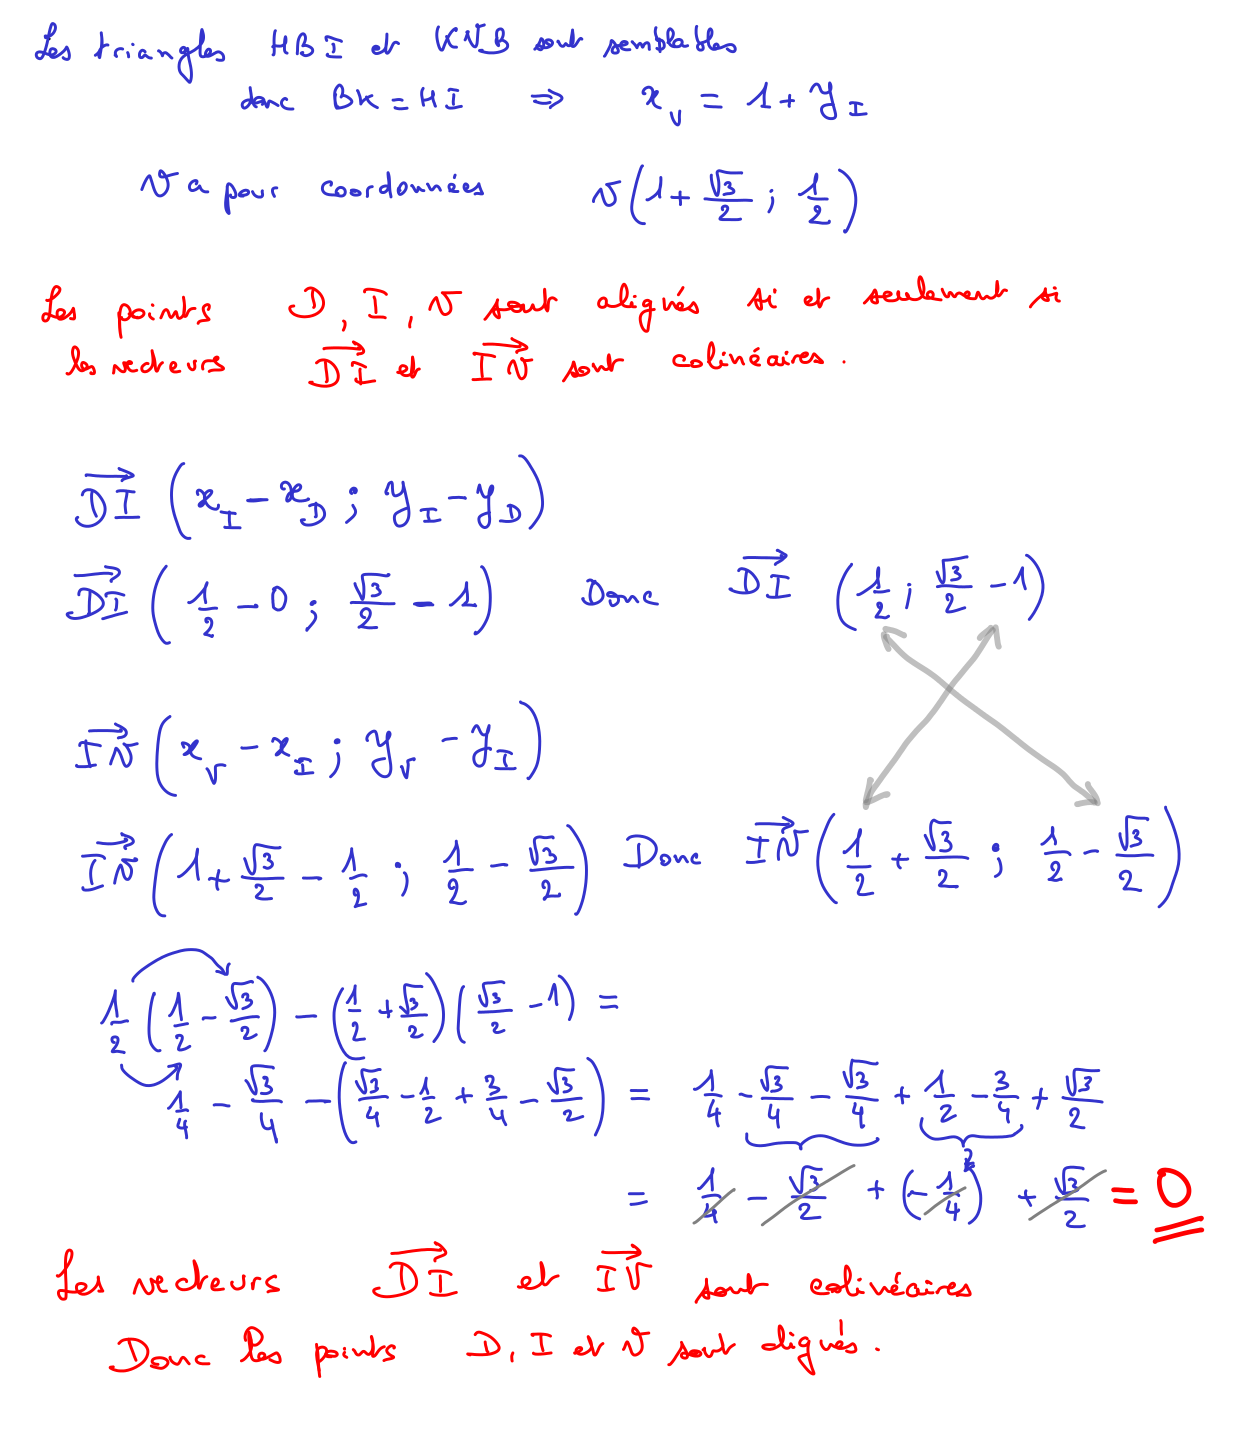 Les triangles HBI et KVB sont semblables
donc BK = HI ⇒ x_V = 1 + y_I
V a pour coordonnées V(1 + √3/2 ; 1/2)
Les points D, I, V sont alignés si et seulement si
les vecteurs DI et IV sont colinéaires.
DI (x_I − x_D ; y_I − y_D)
DI (1/2 − 0 ; √3/2 − 1) Donc DI (1/2 ; √3/2 − 1)
IV (x_V − x_I ; y_V − y_I)
IV (1 + √3/2 − 1/2 ; 1/2 − √3/2) Donc IV (1/2 + √3/2 ; 1/2 − √3/2)
1/2 (1/2 − √3/2) − (1/2 + √3/2) (√3/2 − 1) =
1/4 − √3/4 − (√3/4 − 1/2 + 3/4 − √3/2) = 1/4 − √3/4 − √3/4 + 1/2 − 3/4 + √3/2
= 1/4 − √3/2 + (− 1/4) + √3/2 = 0
Les vecteurs DI et IV sont colinéaires
Donc les points D, I et V sont alignés.